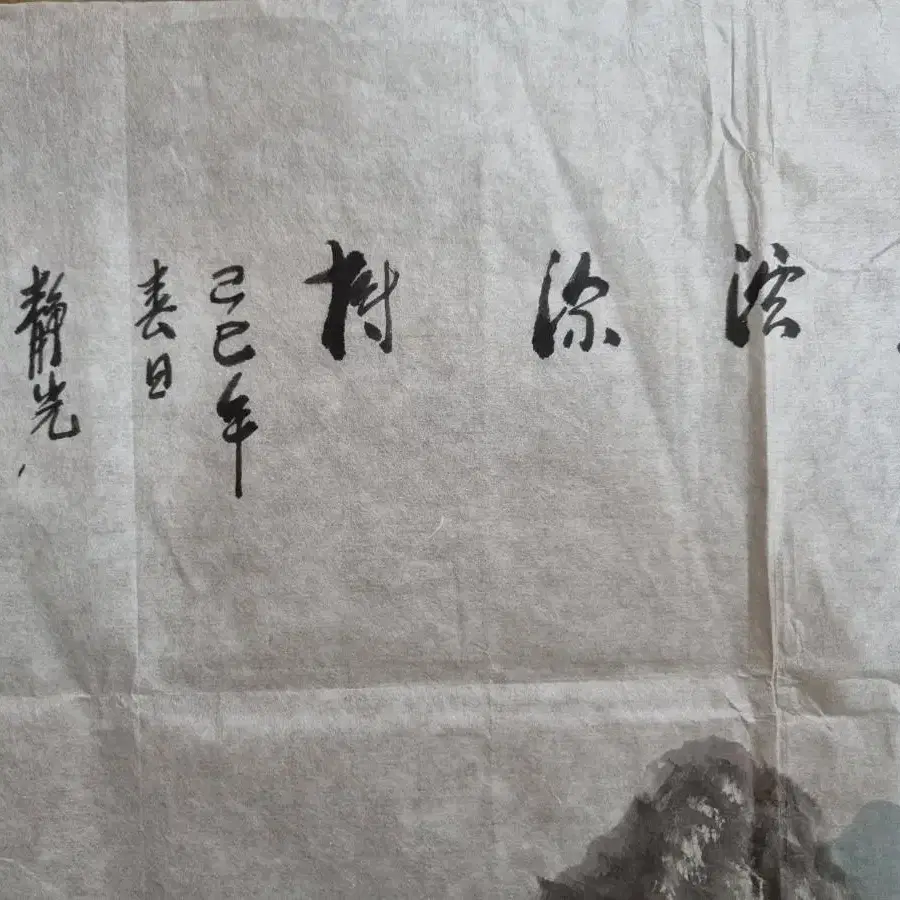 深樹
己巳年
春日
靜光